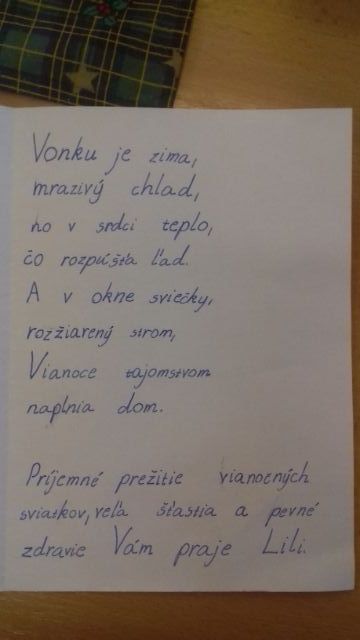 Vonku je zima,
mrazivý chlad,
no v srdci teplo,
čo rozpúšťa ľad.
A v okne sviečky,
rozžiarený strom,
Vianoce tajomstvom
naplnia dom.
Príjemné prežitie vianočných
sviatkov, veľa šťastia a pevné
zdravie Vám praje Lili.